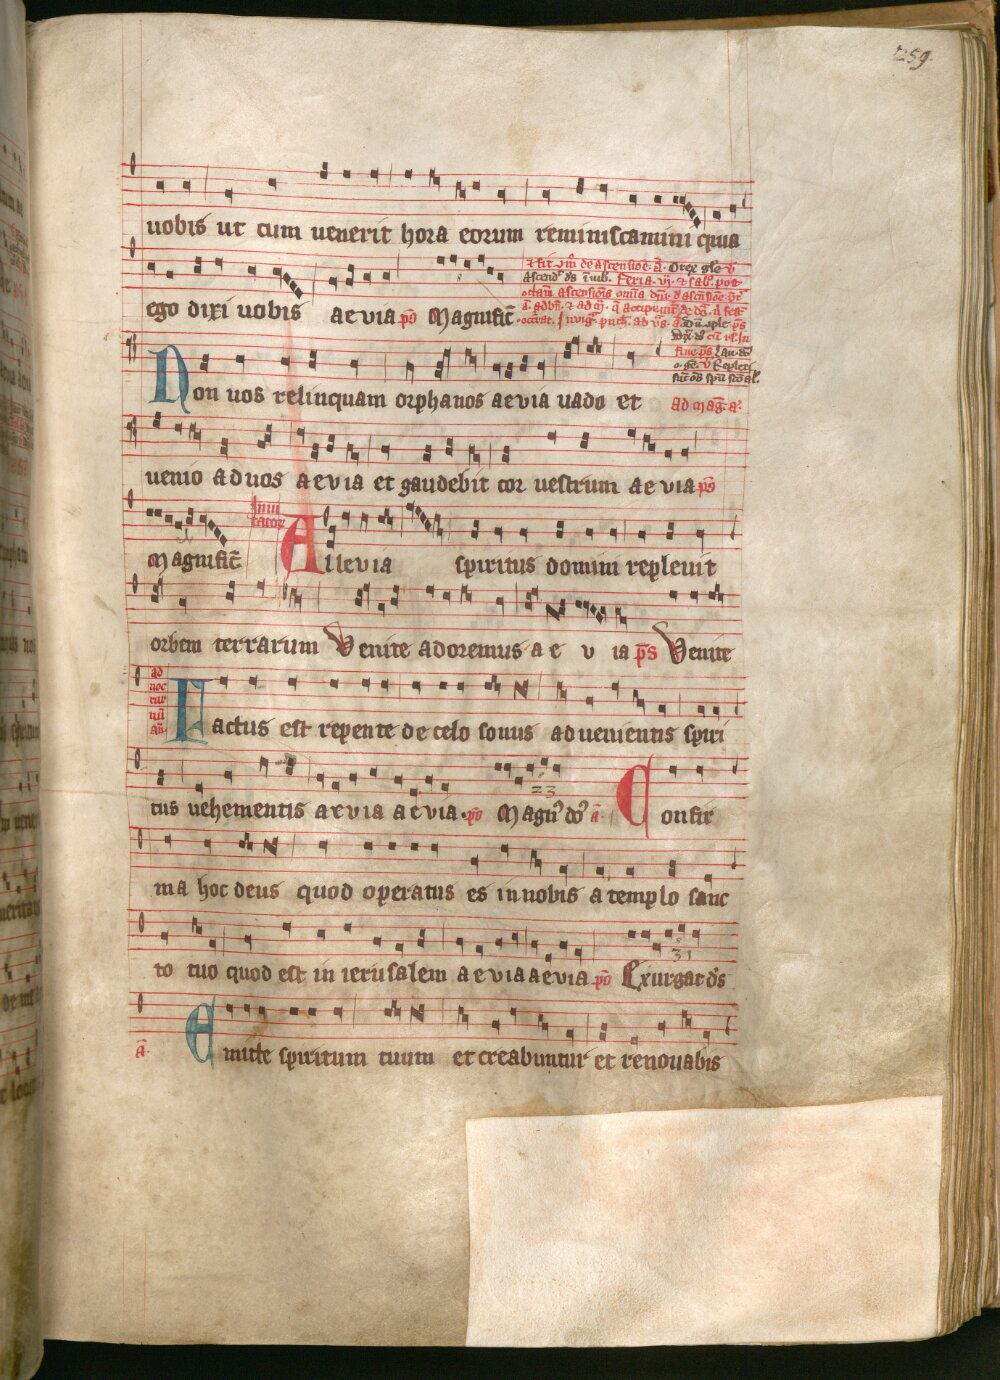 259
uobis ut cum uenerit hora eorum reminiscamini quia
ego dixi uobis aeuia ps Magnificat
ascend ds Feria vi
octauam ascensionis omnia
ad mag a
Non uos relinquam orphanos aeuia uado et
uenio ad uos aeuia et gaudebit cor uestrum aeuia ps
Magnificat Inui tator Alleuia spiritus domini repleuit
orbem terrarum Venite adoremus a e u ia ps Venite
ad noc tur
Factus est repente de celo sonus aduenientis spiri
tus uehementis aeuia aeuia ps Magn do a Confir
23
ma hoc deus quod operatus es in nobis a templo sanc
to tuo quod est in ierusalem aeuia aeuia ps Exurgat ds
31
a Emitte spiritum tuum et creabuntur et renouabis